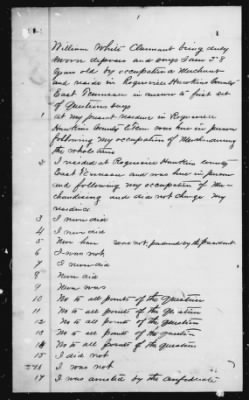 William White Claimant being duly
sworn deposes and says I am 58
years old by occupation a Merchant
and reside in Rogersville Hawkins County
East Tennessee in answer to first set
of Questions says
1 at my present residence in Rogersville
Hawkins County E Tenn was here in person
following my occupation of Merchandising
the whole time
2 I resided at Rogersville Hawkins County
East Tennessee and was here in person
and following my occupation of Mer-
chandising and did not change my
residence
3 I never did
4 I never did
5 Never have was not pardoned by the President
6 I was not
7 I never did
8 Never did
9 Never was
10 No to all points of the Question
11 No to all points of the Question
12 No to all points of the question
13 No to all points of the question
14 No to all points of the question
15 I did not
16 I was not
17 I was arrested by the Confederate